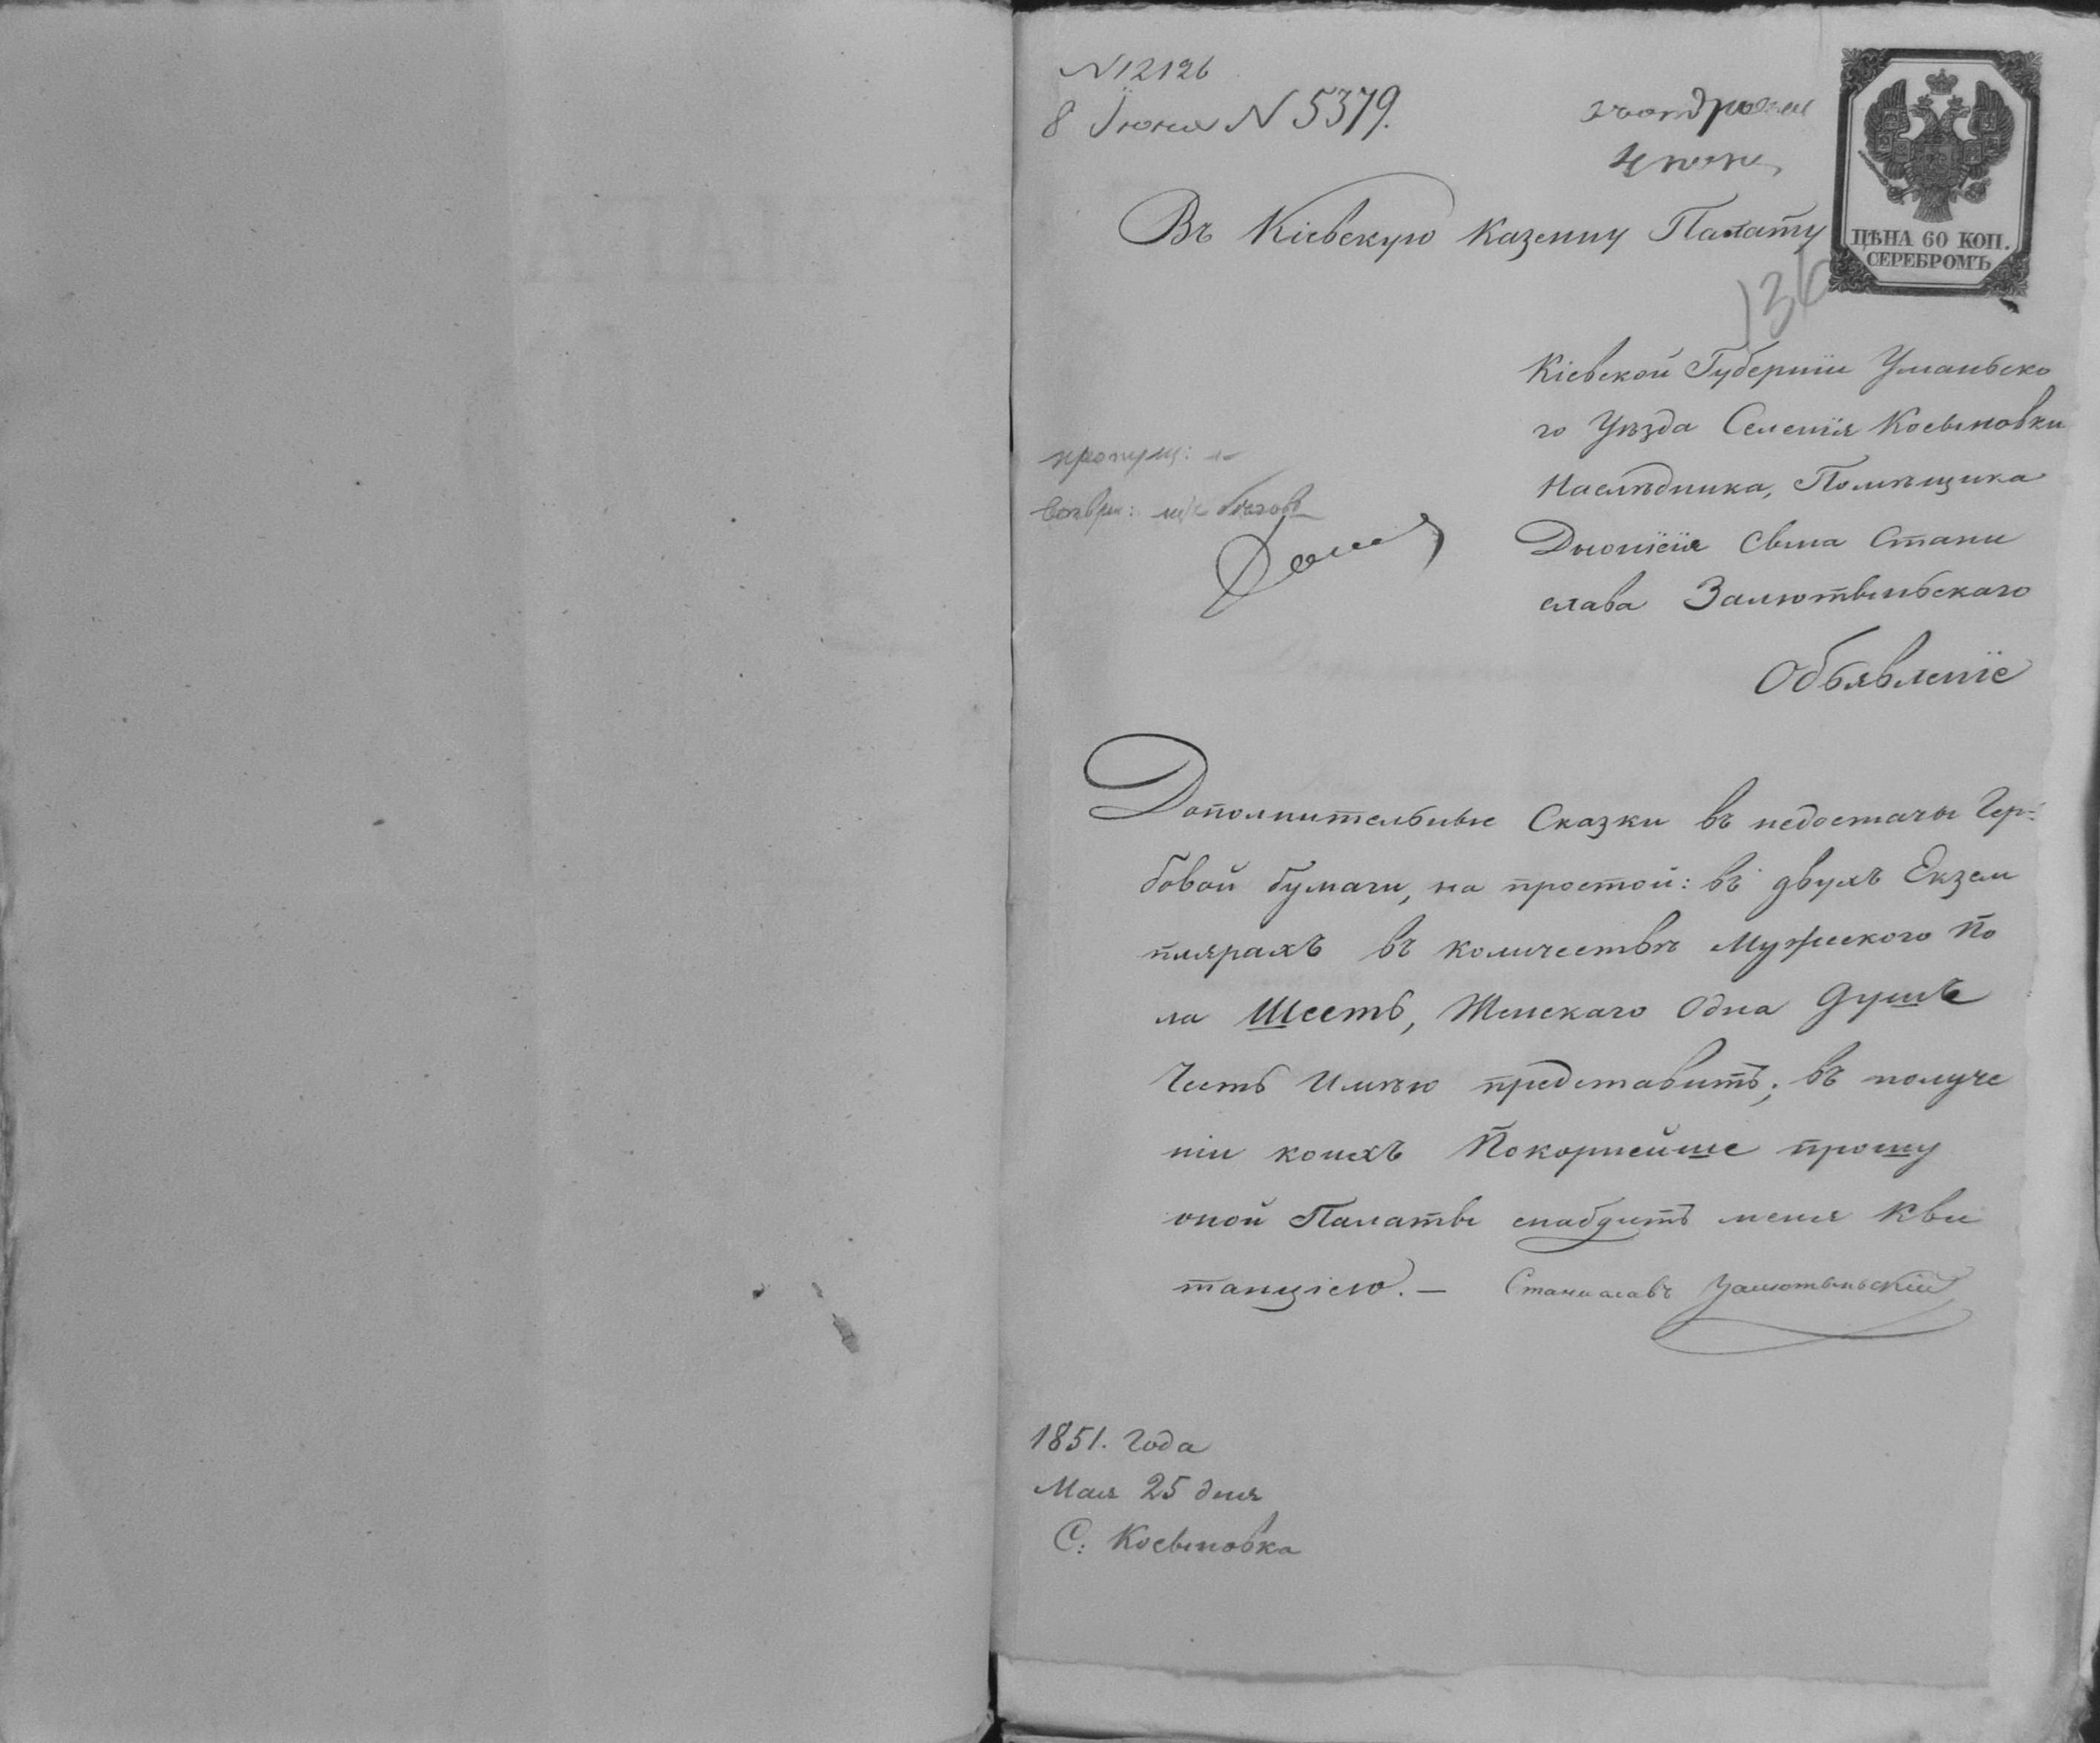 N 12126
8 Іюня N 5379.
4 июн
Въ Кіевскую Казенну Палату
ЦѢНА 60 КОП.
СЕРЕБРОМЪ
136
Кіевской Губерніи Уманьско
го Уѣзда Селенія Косыновки
Наслѣдника, Помѣщика
Діонісія Сына Стани
слава Залютыньскаго
Объявленіе
Дополнительные Сказки въ недостачы Гер=
бовой бумаги, на простой: въ двухъ Екзем
плярахъ въ количествѣ Мужеского По
ла Шесть, Женскаго Одна душъ
Честь Имѣю представить; въ получе
ніи коихъ Покорнейше прошу
оной Палаты снабдить меня Кви
танціею. — Станиславъ Залютыньскій
1851. Года
Мая 25 дня
С: Косыновка